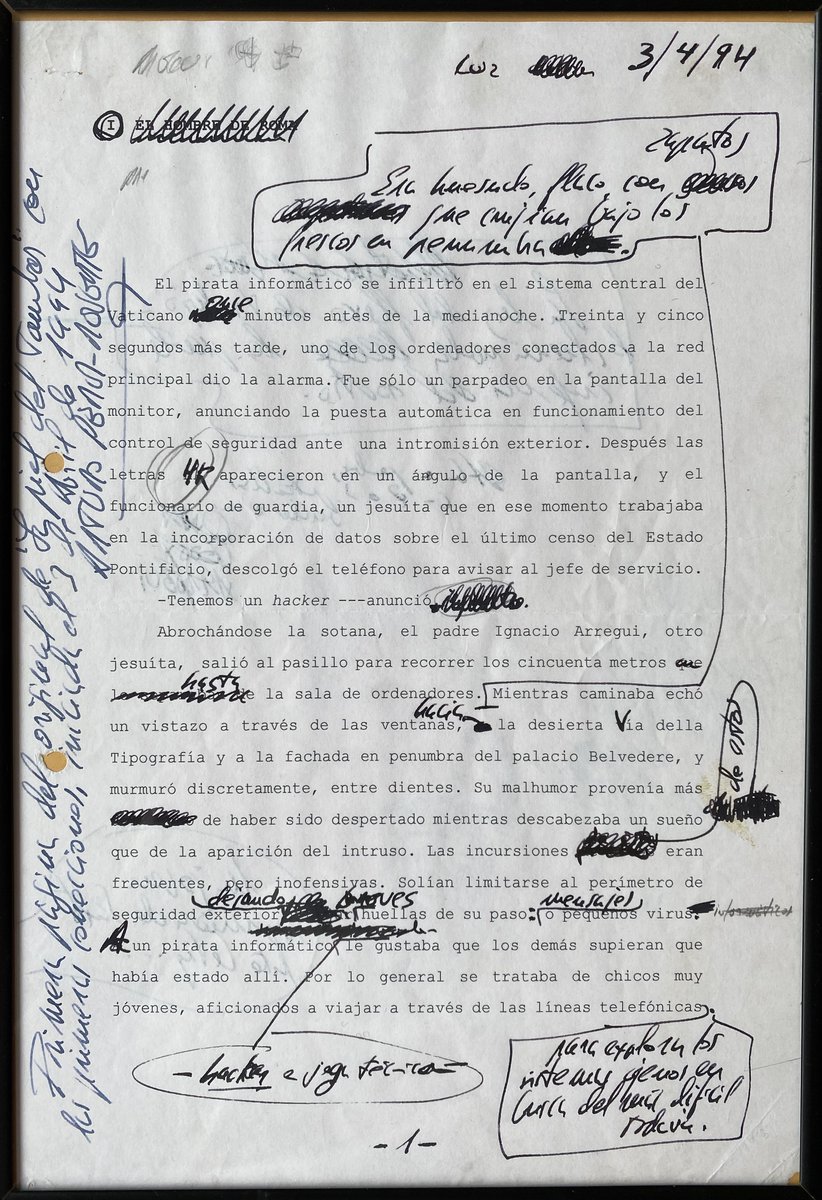 3/4/94
I EL HOMBRE DE ROMA
zapatos
Era huesudo, flaco, con
que crujían bajo los
frescos en penumbra
El pirata informático se infiltró en el sistema central del
Vaticano once minutos antes de la medianoche. Treinta y cinco
segundos más tarde, uno de los ordenadores conectados a la red
principal dio la alarma. Fue sólo un parpadeo en la pantalla del
monitor, anunciando la puesta automática en funcionamiento del
control de seguridad ante una intromisión exterior. Después las
letras HK aparecieron en un ángulo de la pantalla, y el
funcionario de guardia, un jesuíta que en ese momento trabajaba
en la incorporación de datos sobre el último censo del Estado
Pontificio, descolgó el teléfono para avisar al jefe de servicio.
-Tenemos un hacker ---anunció.
Abrochándose la sotana, el padre Ignacio Arregui, otro
jesuíta, salió al pasillo para recorrer los cincuenta metros
hasta la sala de ordenadores. Mientras caminaba echó
un vistazo a través de las ventanas, hacia la desierta Vía della
Tipografía y a la fachada en penumbra del palacio Belvedere, y
murmuró discretamente, entre dientes. Su malhumor provenía más
de haber sido despertado mientras descabezaba un sueño
que de la aparición del intruso. Las incursiones de estos eran
frecuentes, pero inofensivas. Solían limitarse al perímetro de
dejando breves mensajes
seguridad exterior huellas de su paso: o pequeños virus.
A un pirata informático le gustaba que los demás supieran que
había estado allí. Por lo general se trataba de chicos muy
jóvenes, aficionados a viajar a través de las líneas telefónicas
para explorar los
sistemas ajenos en
busca del más difícil
todavía.
- hacker o jerga técnica -
-1-
Primera página del original de "La piel del tambor" con
las primeras correcciones, iniciada el 3 de abril de 1994
ARTURO PÉREZ-REVERTE